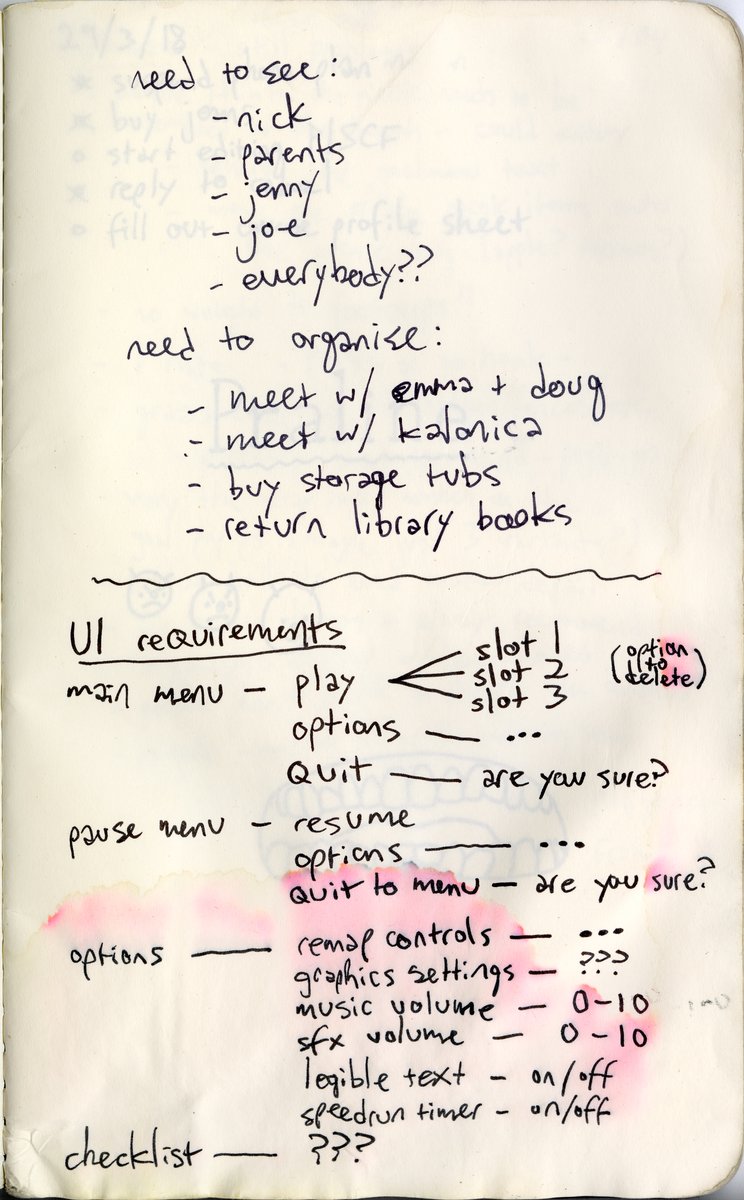 need to see:
- nick
- parents
- jenny
- joe
- everybody??
need to organise:
- meet w/ emma + doug
- meet w/ katonica
- buy storage tubs
- return library books
UI requirements
main menu - play
slot 1
slot 2
slot 3
(option to delete)
options — ...
Quit — are you sure?
pause menu - resume
options — ...
Quit to menu — are you sure?
options — remap controls — ...
graphics settings — ???
music volume — 0-10
sfx volume — 0-10
legible text - on/off
speedrun timer - on/off
checklist — ???